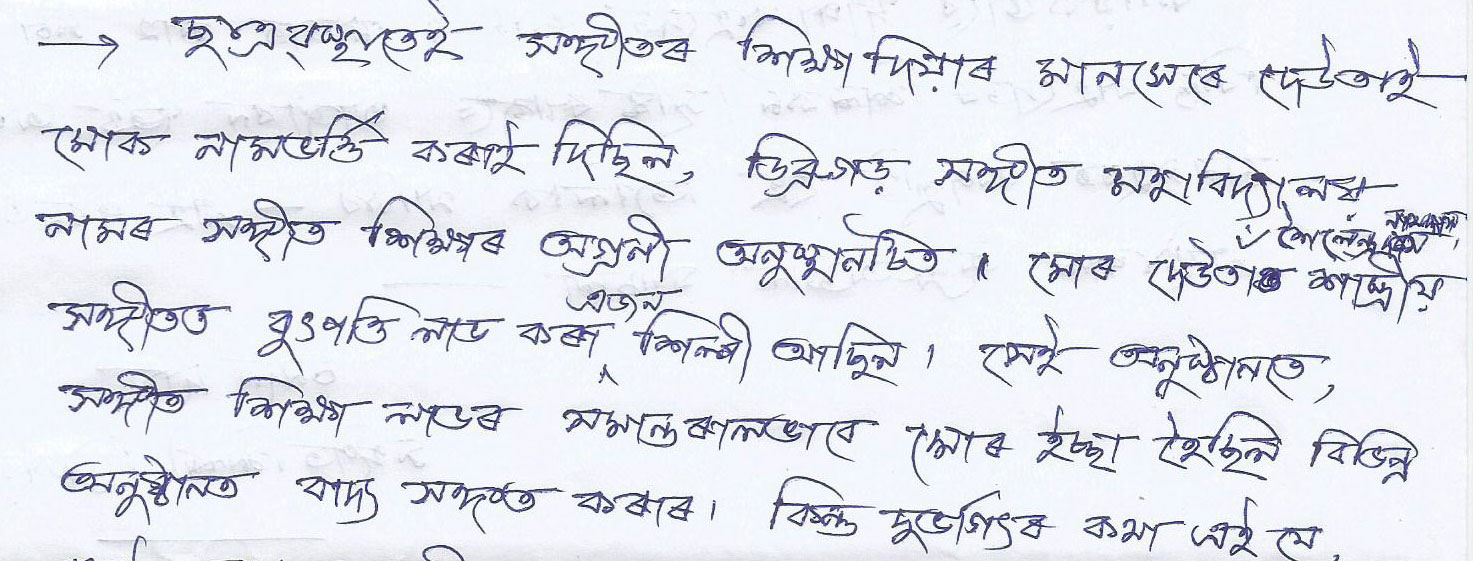 → ছাত্ৰাৱস্থাতেই সঙ্গীতৰ শিক্ষা দিয়াৰ মানসেৰে দেউতাই
মোক নামভৰ্ত্তি কৰাই দিছিল, ডিব্ৰুগড় সঙ্গীত মহাবিদ্যালয়
নামৰ সঙ্গীত শিক্ষাৰ অগ্ৰনী অনুষ্ঠানটিত । মোৰ দেউতা শৈলেন্দ্ৰ শাস্ত্ৰীয়
সঙ্গীতত বুৎপত্তি লাভ কৰা এজন শিল্পী আছিল । সেই অনুষ্ঠানতে,
সঙ্গীত শিক্ষা লাভৰ সমান্তৰালভাবে মোৰ ইচ্ছা হৈছিল বিভিন্ন
অনুষ্ঠানত বাদ্য সঙ্গত কৰাৰ । কিন্তু দুৰ্ভাগ্যৰ কথা এই যে,